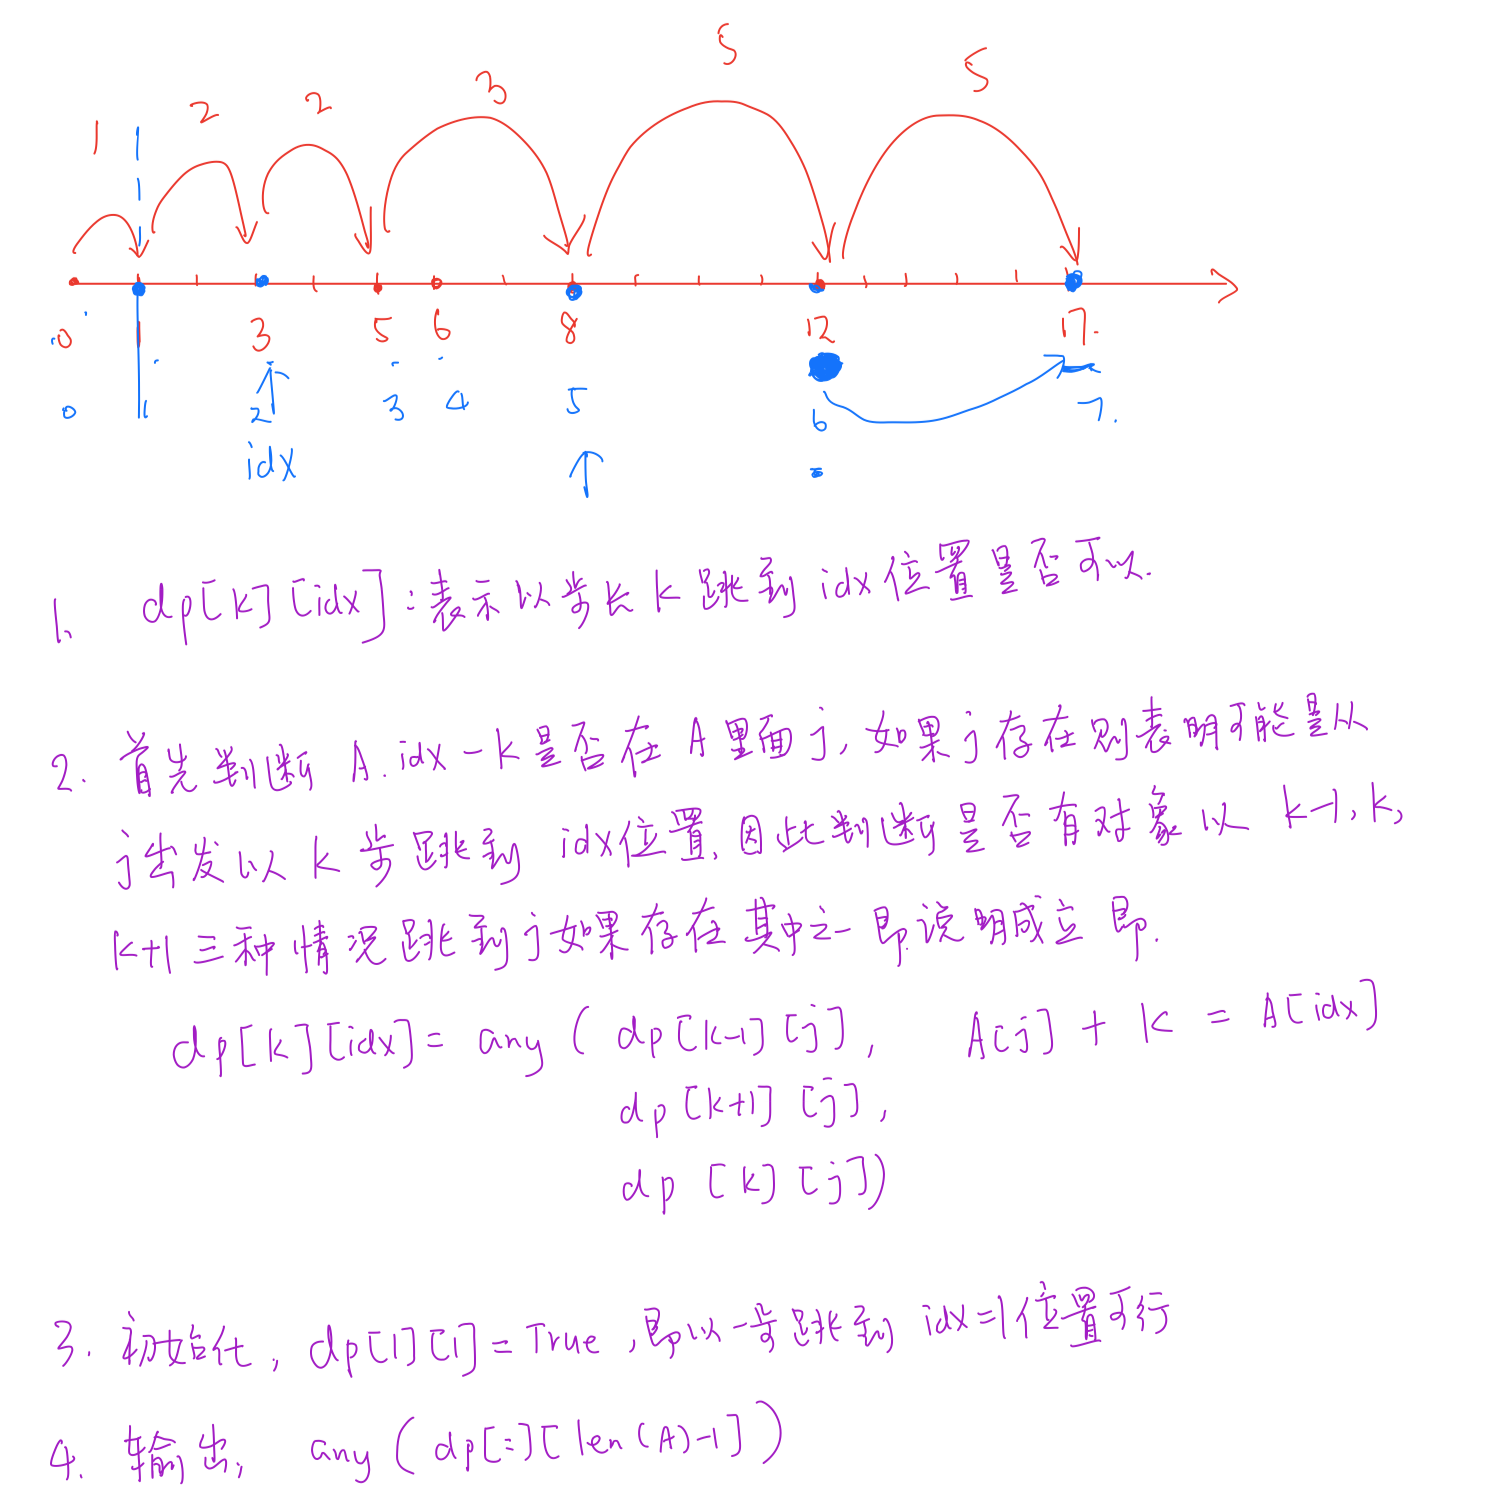 1 2 2 3 5 5
0 1 3 5 6 8 12 17.
0 1 2 3 4 5 6 7.
idx
1. dp[k][idx]:表示以步长k跳到idx位置是否可以.
2. 首先判断 A.idx-k是否在A里面j,如果j存在则表明可能是从
j出发以k步跳到 idx位置,因此判断是否有对象以 k-1,k,
k+1三种情况跳到j如果存在其中之一即说明成立 即.
dp[k][idx]= any ( dp[k-1][j], A[j] + k = A[idx]
dp[k+1][j],
dp [k][j])
3. 初始化, dp[1][1]=True ,即以一步跳到 idx=1位置可行
4. 输出, any (dp[:][len(A)-1])